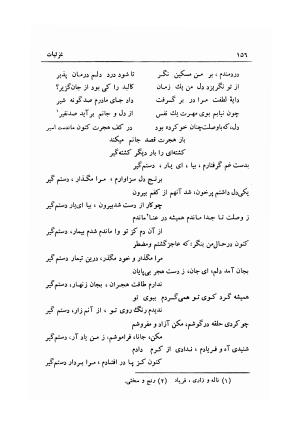 ۱۵۶
غزلیات
دردمندم ، بر من مسکین نگر
تا شود درد دلم درمان پذیر
از تو نگریزد دل من یك زمان
کالبد را کی بود از جان گزیر؟
دایهٔ لطفت مرا در بر گرفت
داد جای مادرم صدگونه شیر
چون نیابم بوی مهرت یك نفس
از دل و جانم برآید صد نفیر
دل، که باوصلت چنان خو کرده بود
در کف هجرت کنون ماندست اسیر
باز هجرت قصد جانم میکند
کشته‌ای را بار دیگر کشته‌گیر
بدست غم گرفتارم ، بیا ، ای یار ، دستم‌گیر
برنج دل سزاوارم ، مرا مگذار ، دستم‌گیر
یکی‌دل داشتم پرخون، شد آنهم از کفم بیرون
چوکار از دست شدبیرون ، بیا ای‌یار دستم‌گیر
ز وصلت تا جدا ماندم همیشه در عنا ماندم
از آن دم کز تو وا ماندم شدم بیمار، دستم‌گیر
کنون درحال من بنگر: که عاجزگشتم ومضطر
مرا مگذار و خود مگذر، درین تیمار دستم‌گیر
بجان آمد دلم، ای جان، ز دست هجر بی‌پایان
ندارم طاقت هجران ، بجان زنهار، دستم‌گیر
همیشه گرد کوی تو همی‌گردم ببوی تو
ندیدم رنگ روی تو ، از آنم زار، دستم‌گیر
چو کردی حلقه درگوشم، مکن آزاد و مفروشم
مکن، جانا، فراموشم، ز من یاد آر، دستم‌گیر
شنیدی آه و فریادم ، ندادی از کرم دادم
کنون کز پا در افتادم ، مرا بردار دستم‌گیر
(۱) ناله و زاری ، فریاد (۲) رنج و سختی.